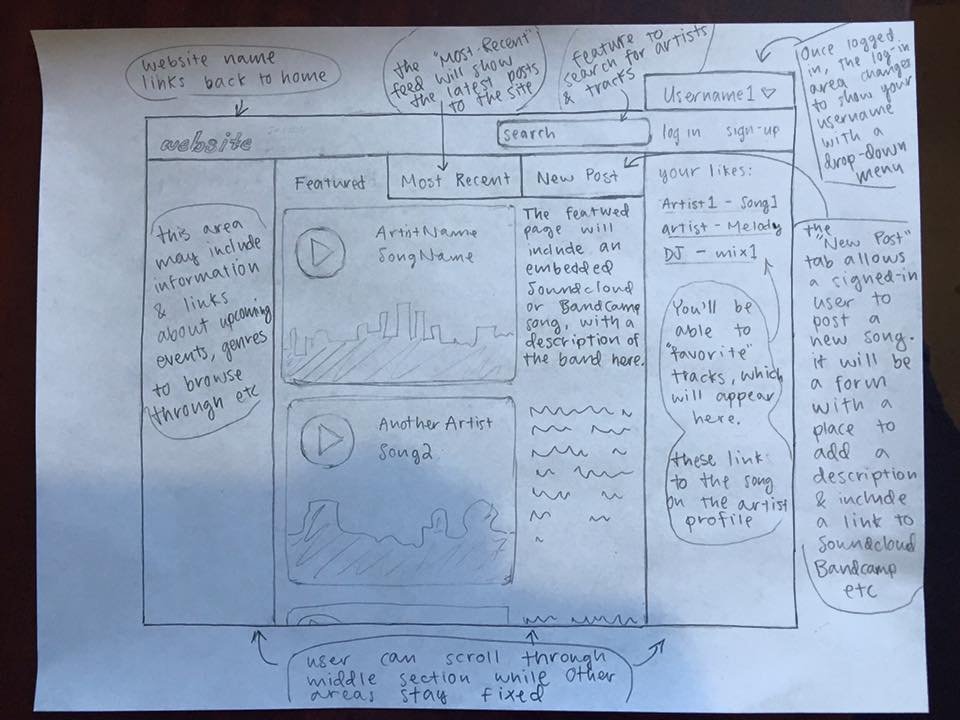 website name
links back to home
the "Most-Recent"
feed will show
the latest posts
to the site
feature to
search for artists
& tracks
Once logged
in, the log-in
area changes
to show your
username
with a
drop-down
menu
Username1
website
search
log in sign-up
Featured
Most Recent
New Post
your likes:
Artist1 - Song1
artist - Melody
DJ - mix1
this area
may include
information
& links
about upcoming
events, genres
to browse
through etc
ArtistName
SongName
The featured
page will
include an
embedded
Soundcloud
or Bandcamp
song, with a
description of
the band here.
You'll be
able to
"favorite"
tracks, which
will appear
here.
these link
to the song
on the artist
profile
the
"New Post"
tab allows
a signed-in
user to
post a
new song.
it will be
a form
with a
place to
add a
description
& include
a link to
Soundcloud
Bandcamp
etc
Another Artist
Song2
user can scroll through
middle section while other
areas stay fixed